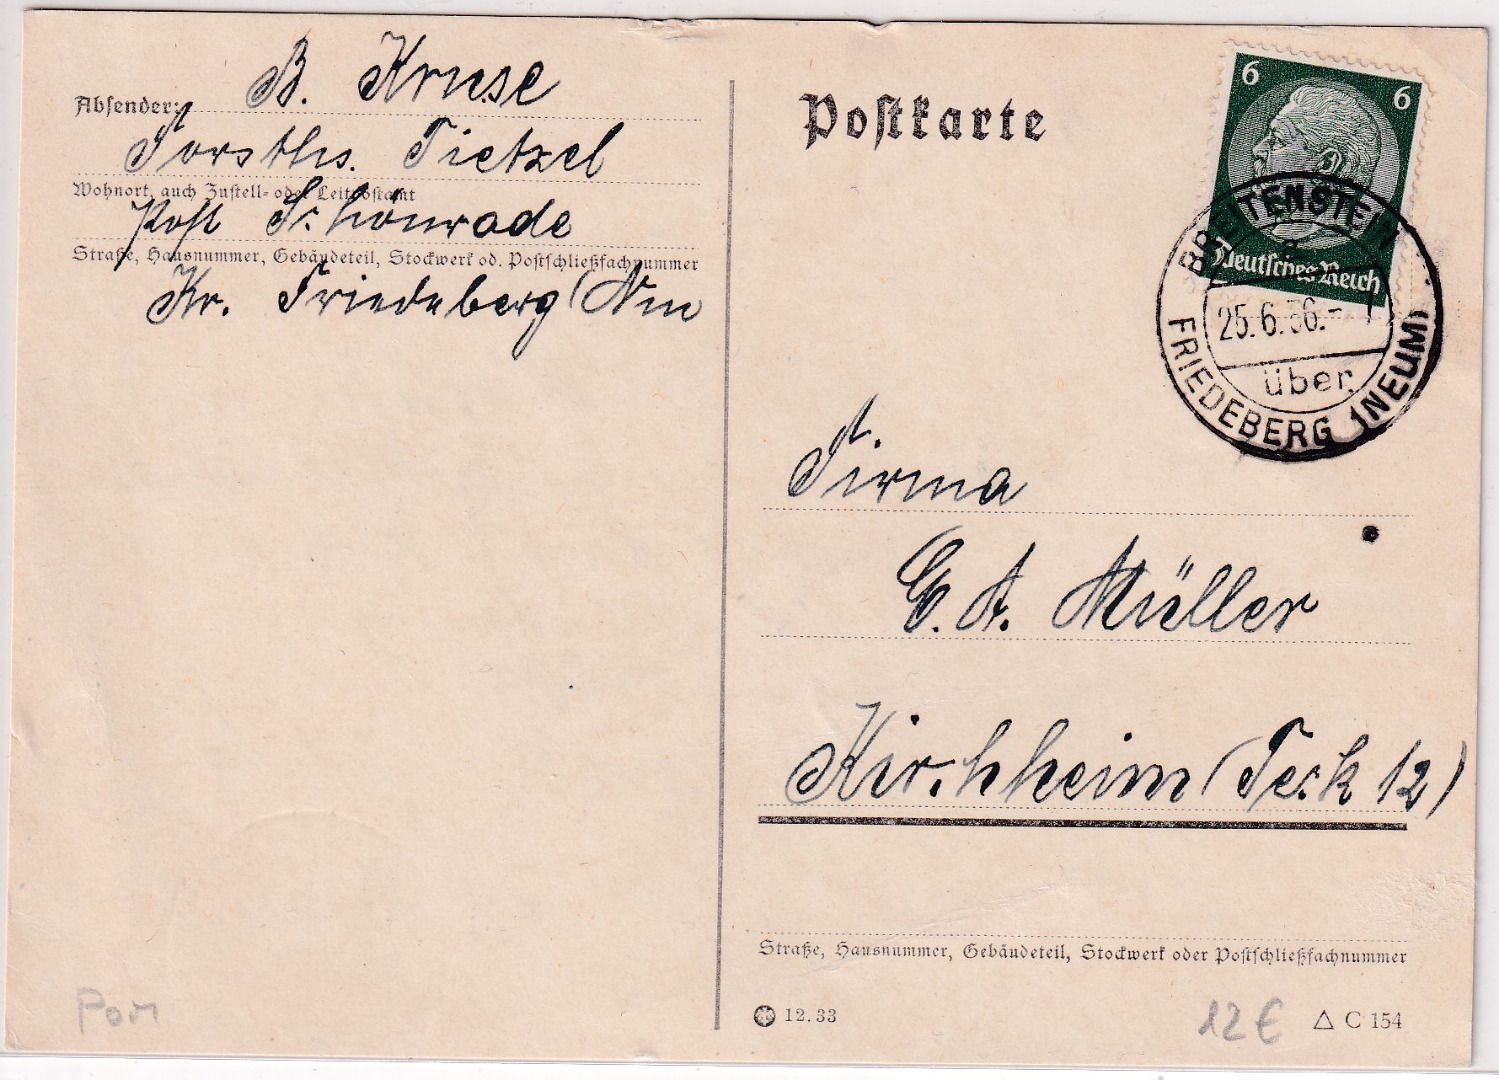 B. Kruse
Absender:
Forsths. Tietzel
Wohnort, auch Zustell- oder Leitpostamt
Post Schönrade
Straße, Hausnummer, Gebäudeteil, Stockwerk od. Postschließfachnummer
Kr. Friedeberg (Nm
Postkarte
6 6
Deutsches Reich
BREITENSTEIN
a
25.6.36.-
über
FRIEDEBERG (NEUM)
Firma
G. A. Müller
Kirchheim (Teck 12)
Straße, Hausnummer, Gebäudeteil, Stockwerk oder Postschließfachnummer
Pom
12.33
12€
△ C 154